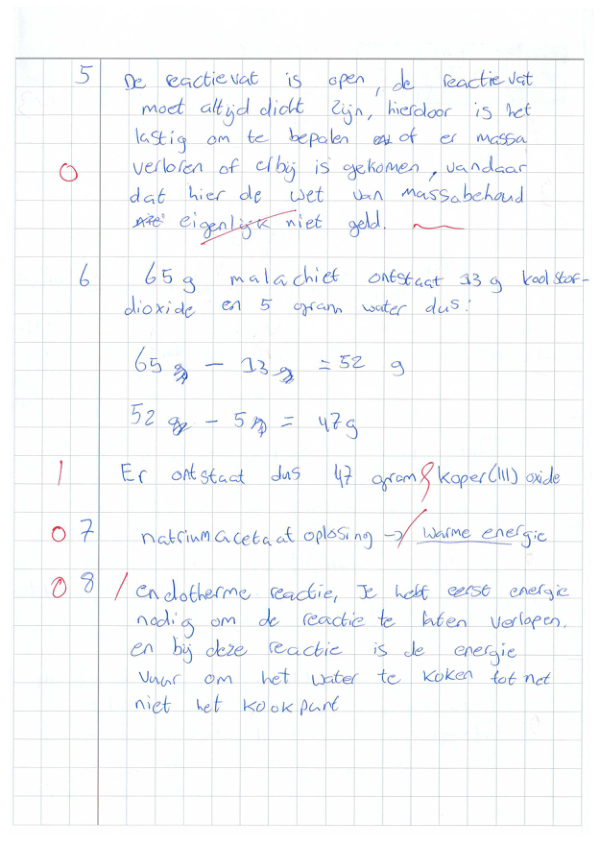 5 De reactievat is open, de reactievat
moet altijd dicht zijn, hierdoor is het
lastig om te bepalen of er massa
0 verloren of erbij is gekomen, vandaar
dat hier de wet van massabehoud
eigenlijk niet geld.
6 65 g malachiet ontstaat 13 g koolstof-
dioxide en 5 gram water dus:
65 g - 13 g = 52 g
52 g - 5 g = 47 g
1 Er ontstaat dus 47 gram koper(III) oxide
0 7 natriumacetaat oplosing → warme energie
0 8 endotherme reactie, Je hebt eerst energie
nodig om de reactie te laten verlopen.
en bij deze reactie is de energie
vuur om het water te koken tot net
niet het kookpunt